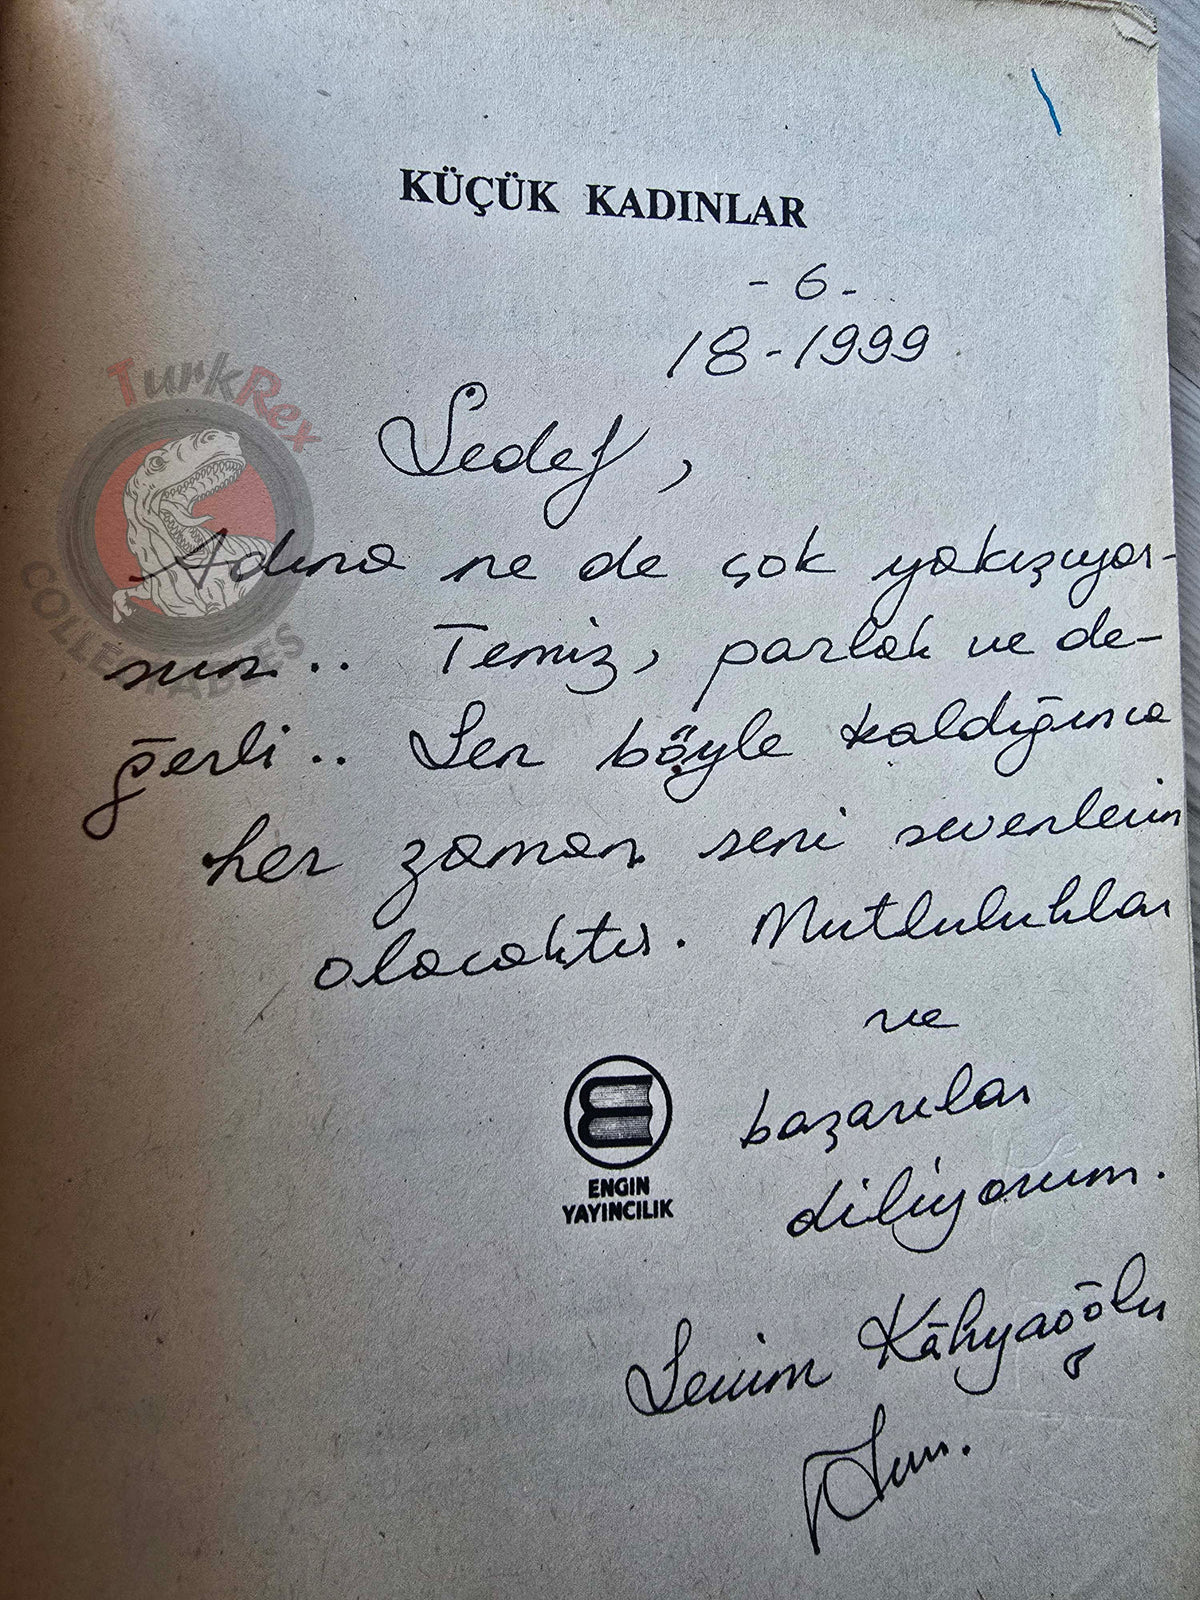 KÜÇÜK KADINLAR
-6-
18-1999
TurkRex
COLLECTABLES
Sedef,
Adına ne de çok yakışıyor-
sun.. Temiz, parlak ve de-
ğerli.. Sen böyle kaldığınca
her zaman seni sevenlerin
olacaktır. Mutluluklar
ve
başarılar
diliyorum.
ENGİN
YAYINCILIK
Sevim Kâhyaoğlu